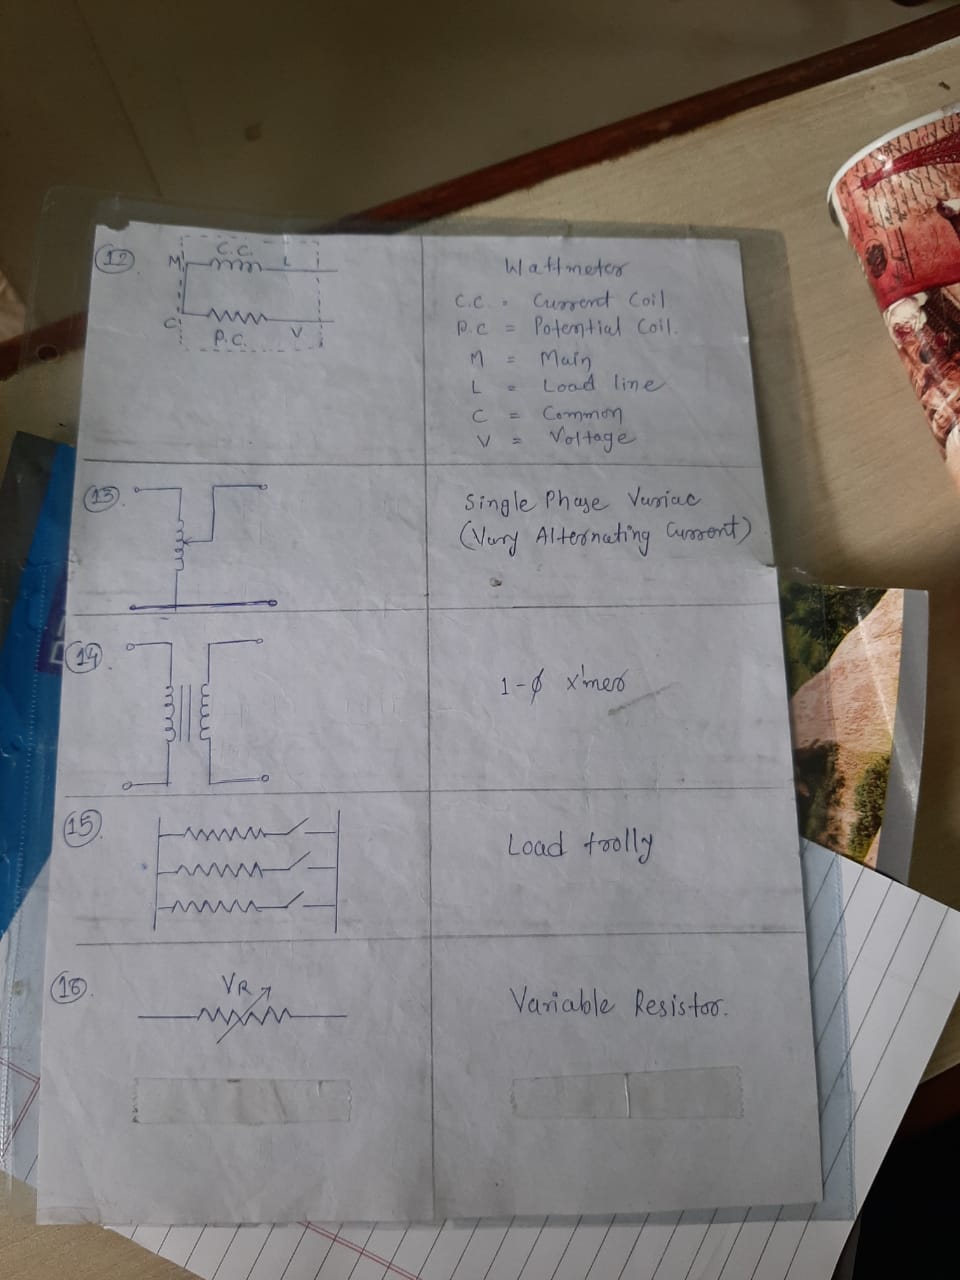 12
C.C.
M
L
C
P.C.
V
Wattmeter
C.C. = Current Coil
P.C = Potential Coil.
M = Main
L = Load line
C = Common
V = Voltage
13.
Single Phase Variac
(Vary Alternating Current)
14.
1-ϕ x'mer
15.
Load trolly
16.
VR
Variable Resistor.